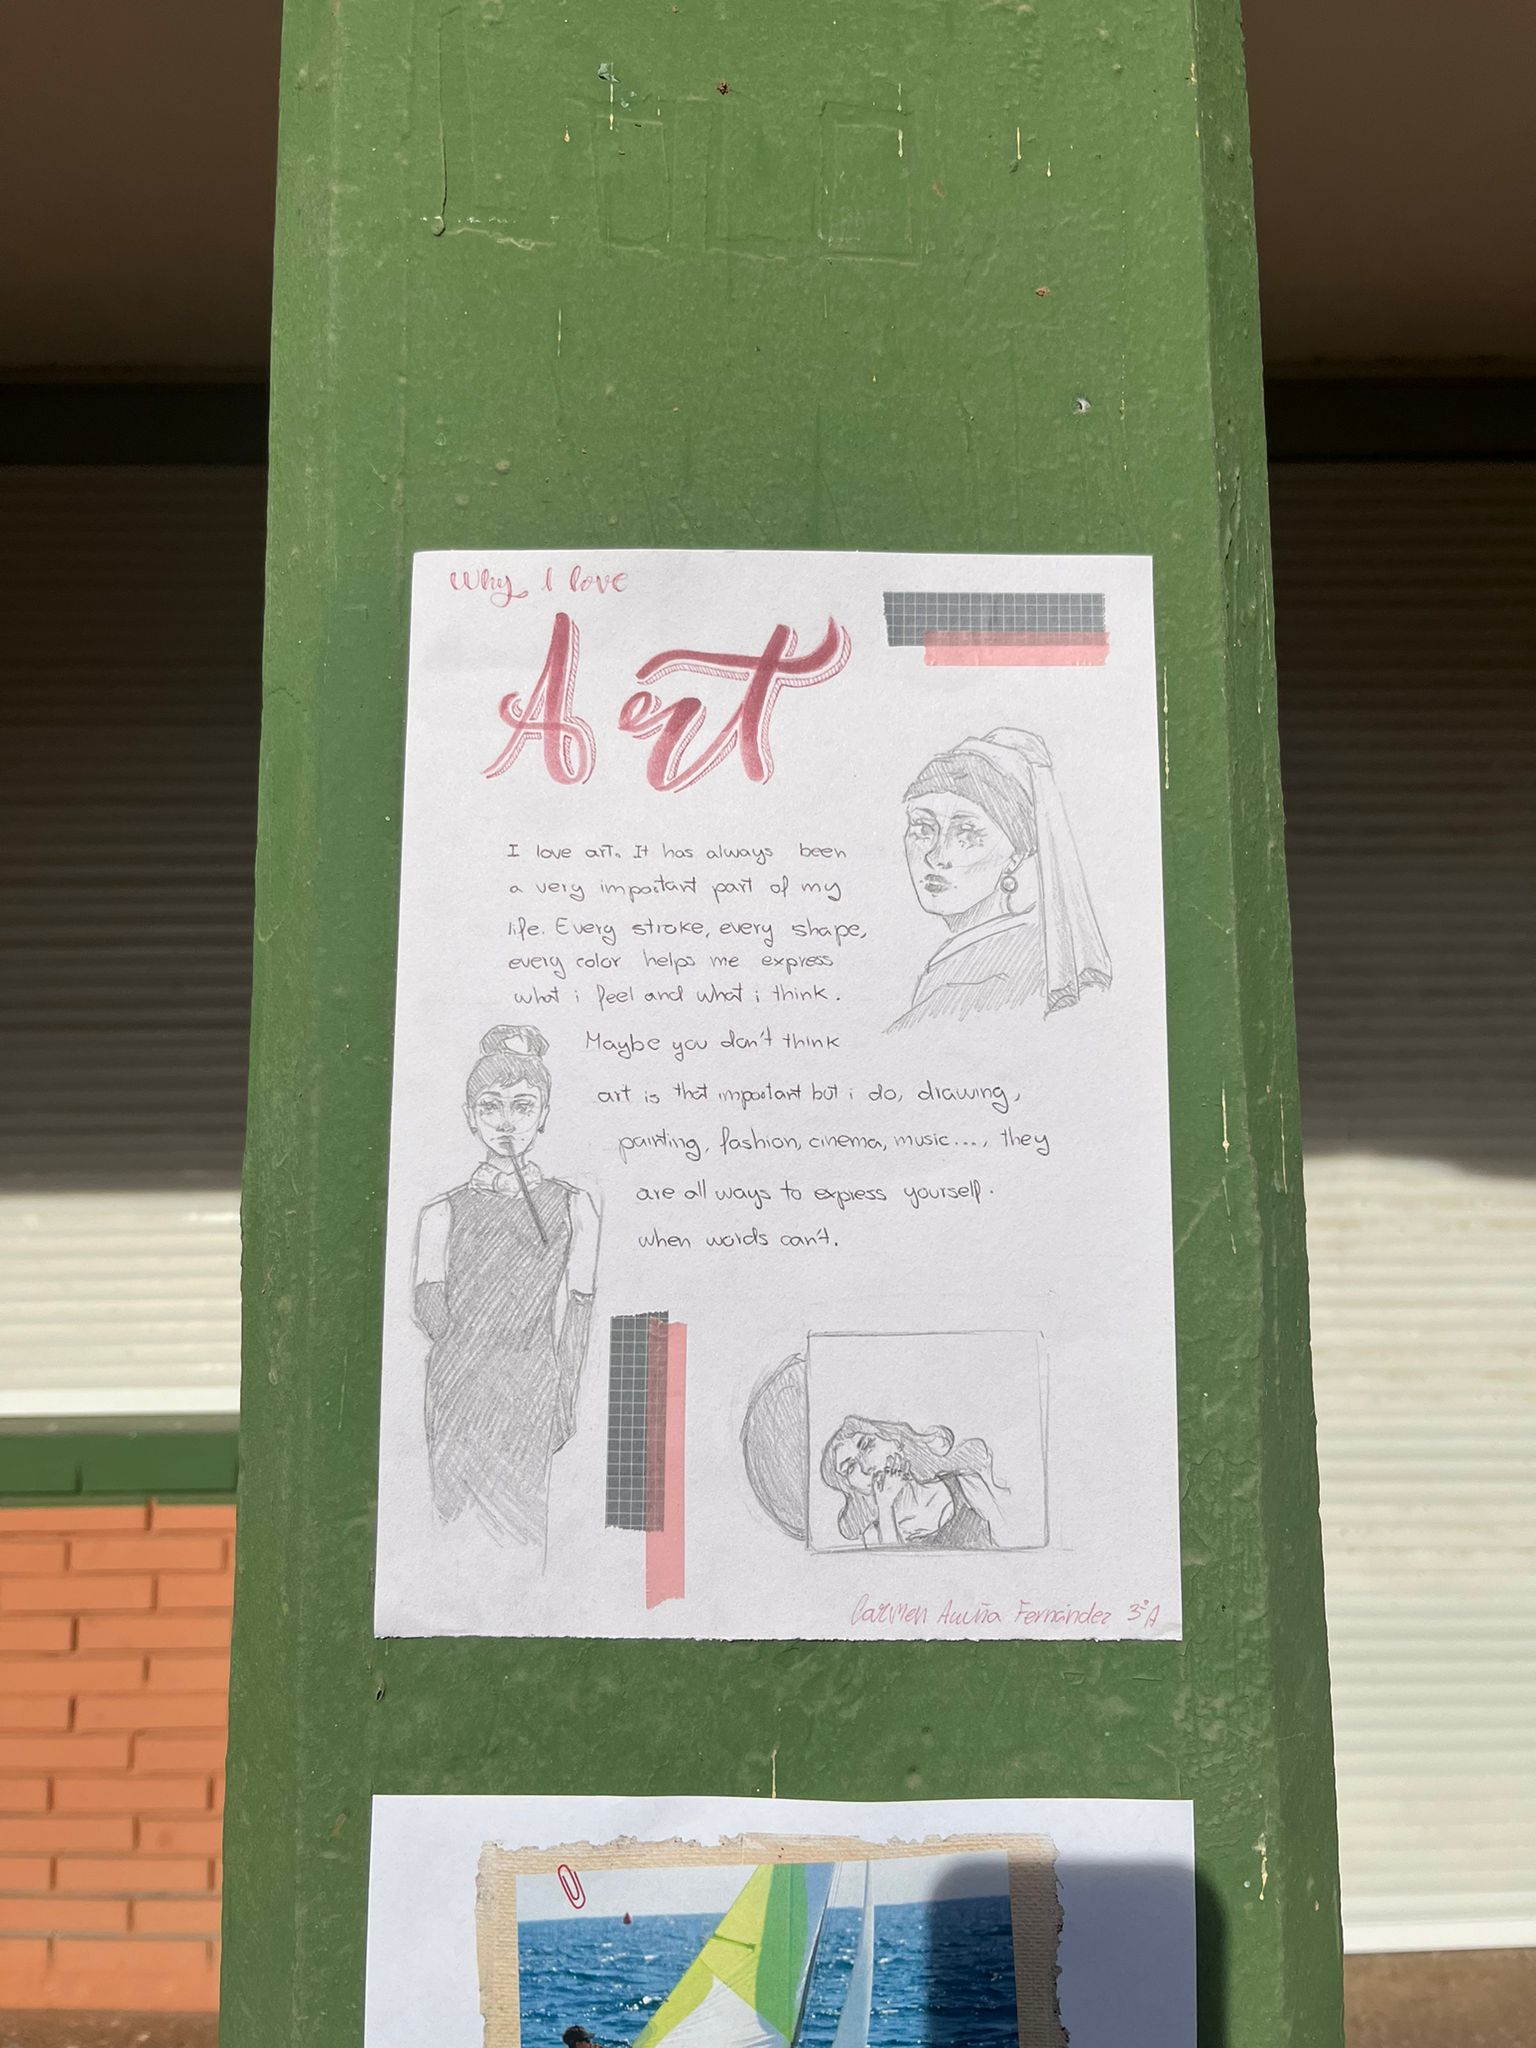 Why I love
Art
I love art. It has always been
a very important part of my
life. Every stroke, every shape,
every color helps me express
what i feel and what i think.
Maybe you don't think
art is that important but i do, drawing,
painting, fashion, cinema, music..., they
are all ways to express yourself.
when words can't.
Carmen Acuña Fernández 3ºA